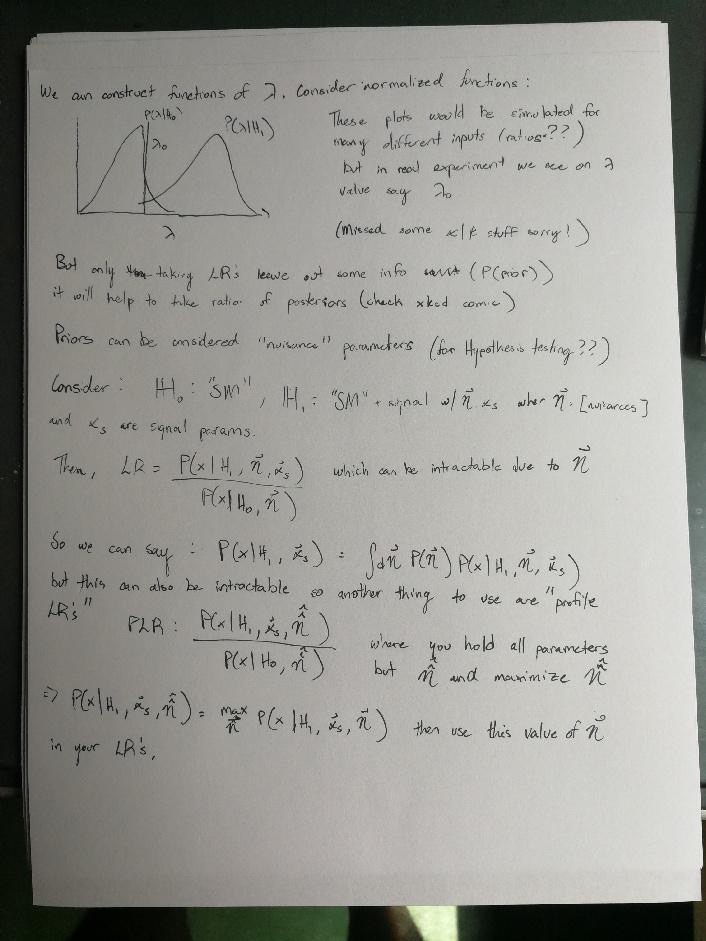 We can construct functions of λ. Consider normalized functions:
P(λ|H₀)
P(λ|H₁)
λ₀
λ
These plots would be simulated for
many different inputs (ratios??)
but in real experiment we see on λ
value say λ₀
(Missed some α/β stuff sorry!)
But only taking LR's leave out some info (P(prior))
it will help to take ratio of posteriors (check xkcd comic)
Priors can be considered "nuisance" parameters (for Hypothesis testing??)
Consider: H₀: "SM", H₁ = "SM" + signal w/ n⃗ αₛ wher n⃗ = [nuisances]
and αₛ are signal params.
Then, LR = P(x|H₁, n⃗, α⃗ₛ) / P(x|H₀, n⃗) which can be intractable due to n⃗
So we can say: P(x|H₁, α⃗ₛ) = ∫dn⃗ P(n⃗) P(x|H₁, n⃗, α⃗ₛ)
but this can also be intractable so another thing to use are "profile
LR's"
PLR: P(x|H₁, α⃗ₛ, n̂̂) / P(x|H₀, n̂̂) where you hold all parameters
but n̂̂ and maximize n̂̂
⇒ P(x|H₁, α⃗ₛ, n̂̂) = max n⃗ P(x|H₁, α⃗ₛ, n⃗) then use this value of n⃗
in your LR's.